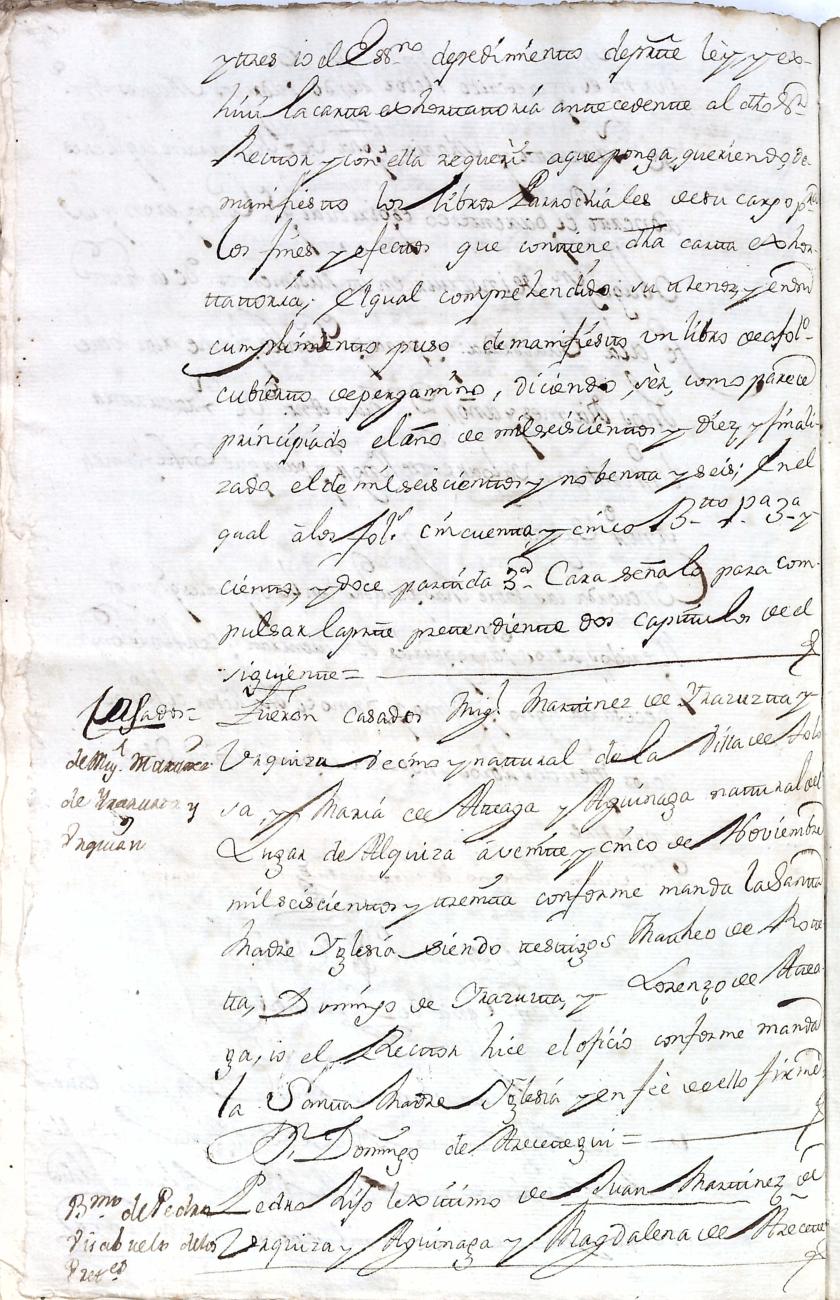 ytres io el Essno depedimiento depnte ley y ex-
hiui la carta exhortattoria antecedente al dho Sr
Rector y con ella requeri a que ponga, queriendo, de
manifiestto los libros Parrochiales de su cargo pa
los fines y efectos que contiene dha carta exhor-
tattoria; el qual comprehendido su thenor, y en su
cumplimiento puso de manifiesto un libro de afolo
cubierto de pergamino, diciendo, ser, como parece
principiado el año de mil seiscientos y diez y finali-
zado el de mil seiscientos y nobenta y seis; en el
qual a los fols cincuenta y cinco Btto pa 3a y
ciento, y doce partida 3a Cara señalo para com-
pulsar la pnte pretendiente dos capitulos de el
siguiente =
Casados =
de Migl Martinez
de Yrazuzta y
Urquiza
Fueron casados Migl Martinez de Yrazuzta y
Urquiza vecino y nattural de la Villa de Tolo
sa, y Maria de Atteaga y Aguinaga nattural del
Lugar de Alquiza a veinte y cinco de Noviembre
mil seiscientos y treinta conforme manda la Santa
Madre Yglesia siendo testigos Matheo de
Domingo de Yrazuzta, y Lorenzo de Attea-
ga, io el Rector hice el oficio conforme manda
la Santta Madre Yglesia y en fee de ello firme
Dn Domingo de Arecettegui =
Bmo de Pedro
Visabuelo de los
Pretes
Pedro hijo lexitimo de Juan Martinez de
Urquiza y Aguinaga y Magdalena de Arecette